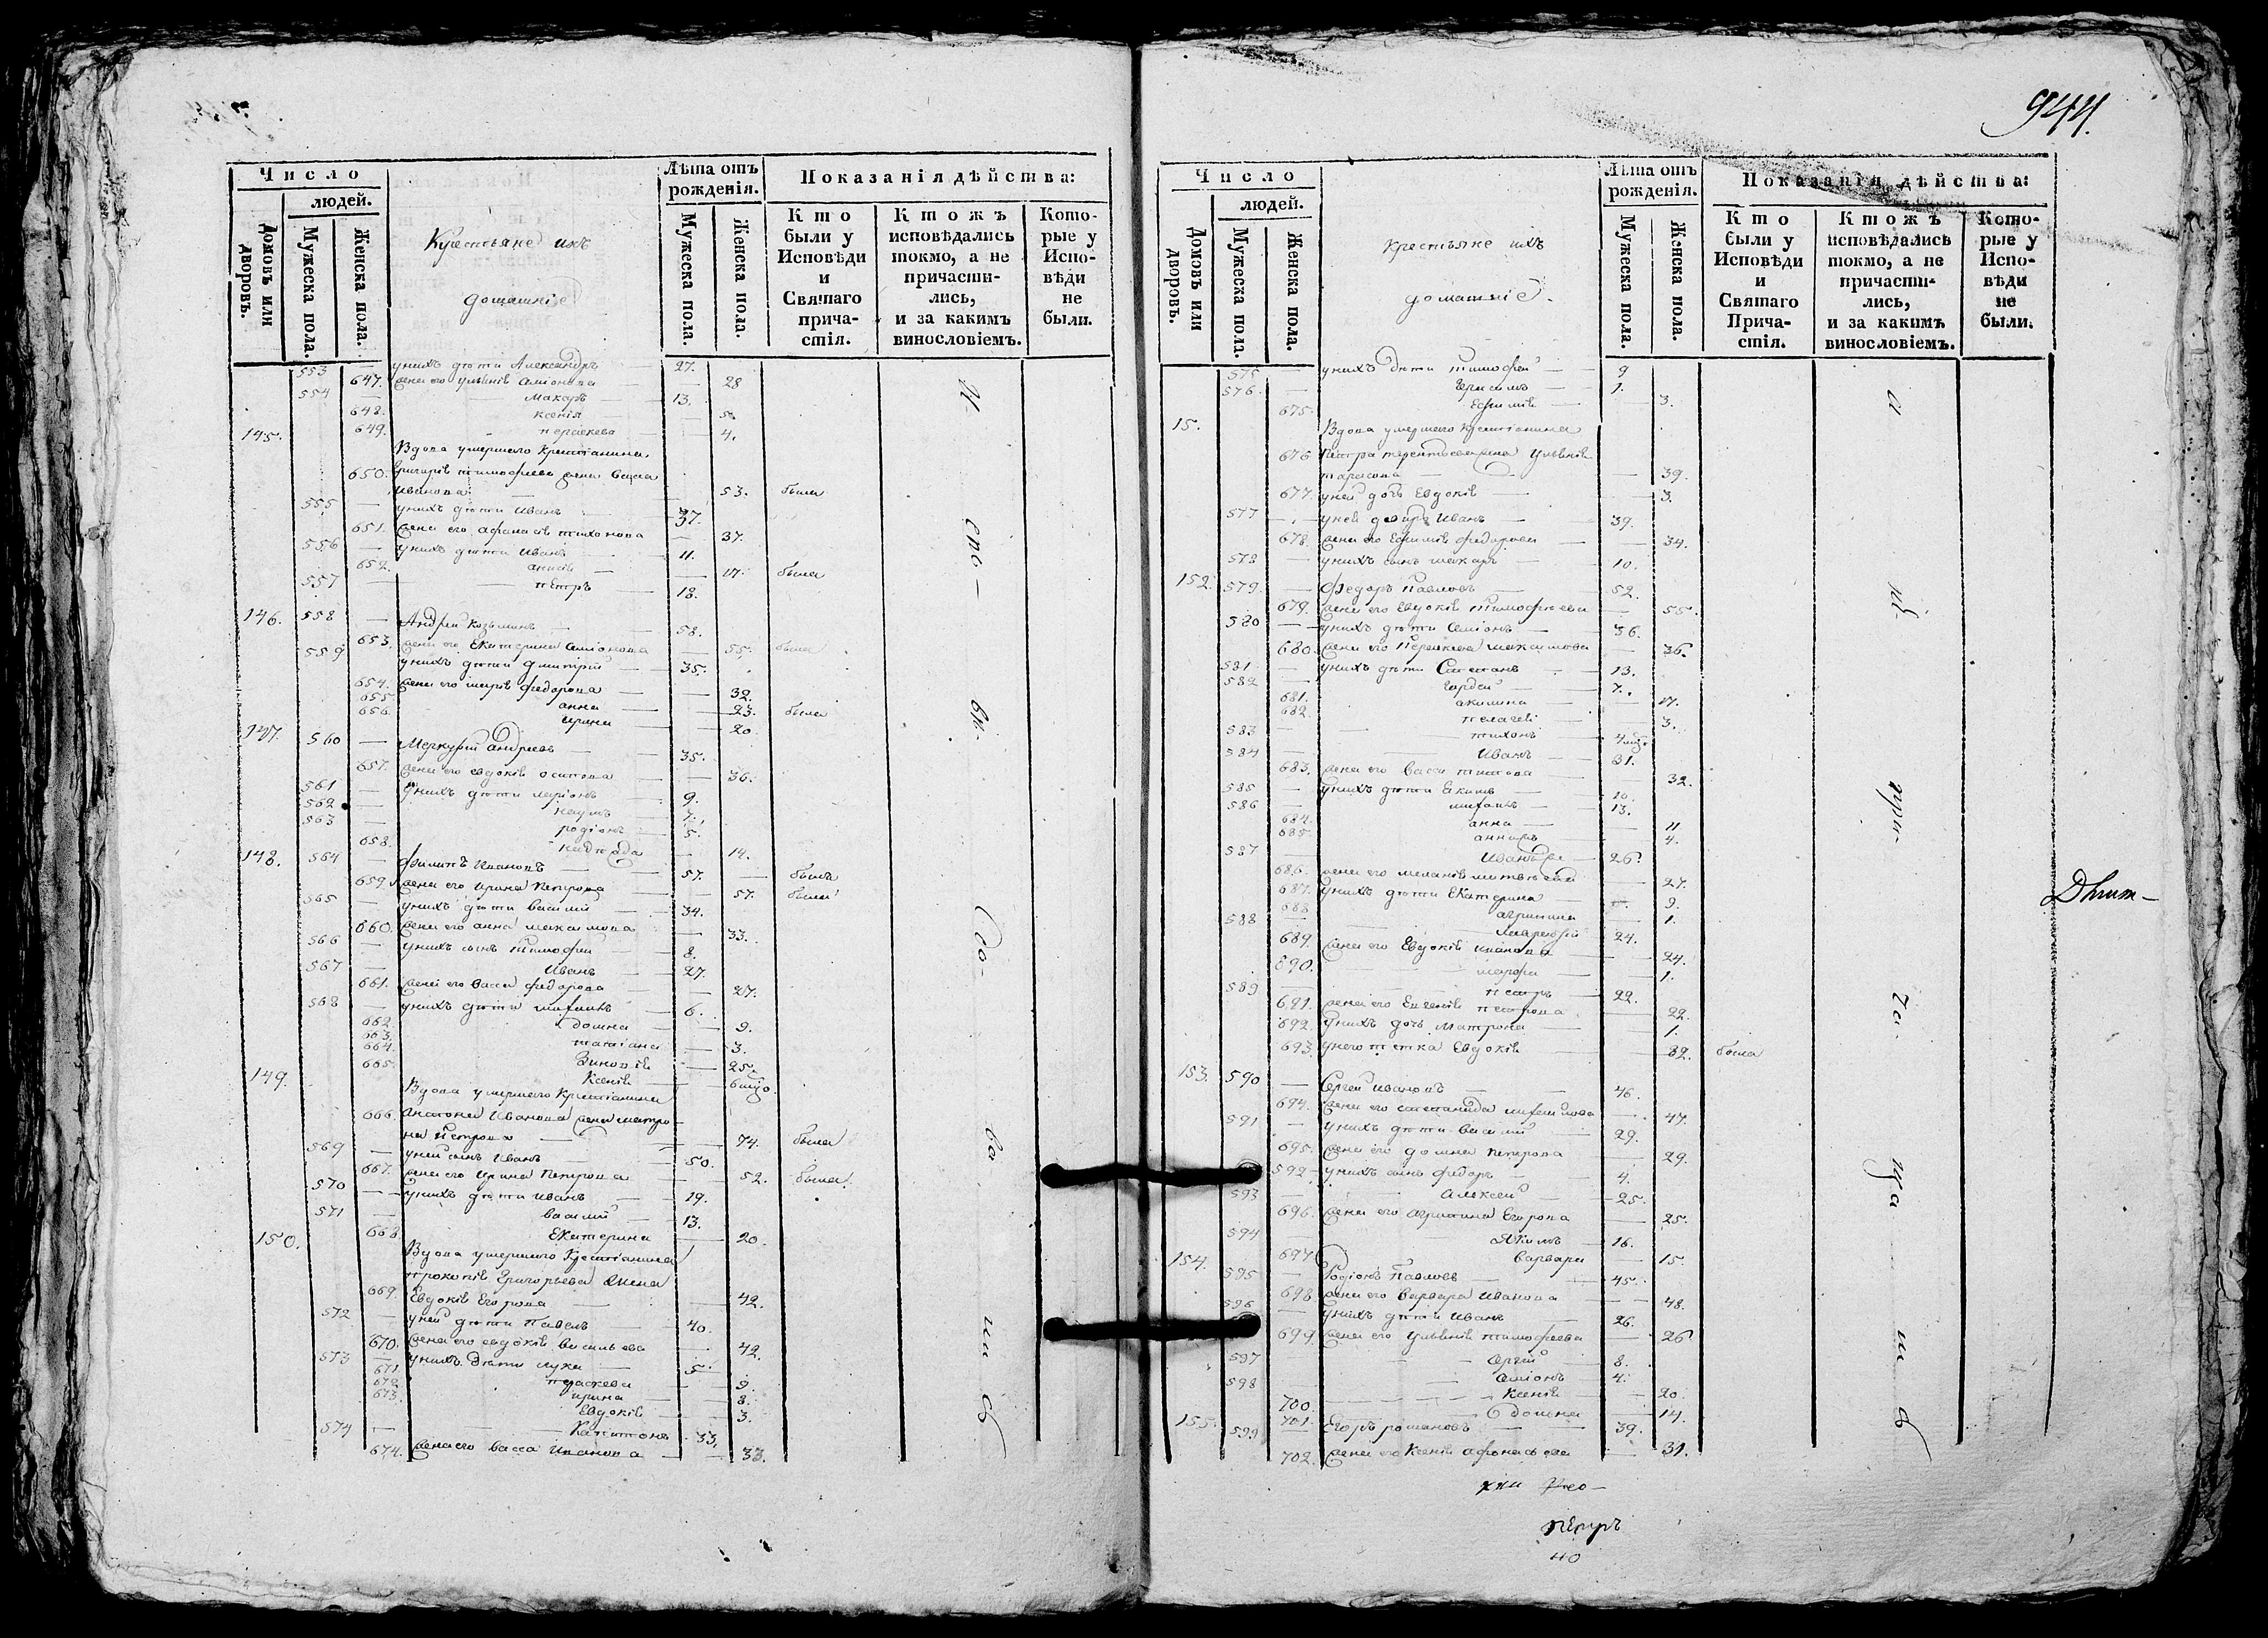 944.
Число
людей.
Домовъ или дворовъ.
Мужеска пола.
Женска пола.
Крестьяне ихъ
домашніе
Лѣта отъ рожденія.
Мужеска пола.
Женска пола.
Показанія дѣйства:
Кто были у Исповѣди и Святаго прича-стія.
Ктожъ исповѣдались токмо, а не причасти-лись, и за какимъ винословіемъ.
Кото-рые у Испо-вѣди не были.
553 — унихъ дѣти Александръ — 27.
647. жена его ульянія Симіонова — 28
554 — Макаръ — 13.
648. Ксенія
649. перасковa — 4.
145.
Вдова умершаго Крестіанина
650. Григорія тимофѣева жена Васса
Иванова — 53. была
555 — унихъ дѣти Иванъ — 37.
651. жена его афанасія тихонова — 37.
556 — унихъ дѣти Иванъ — 11.
652.
557 — петръ — 18.
146. 558 — Андрей Козьминъ — 58.
653. жена его Екатерина Симіонова — 55. была
559 унихъ дѣти дмитрій — 35.
654. жена его марія федорова — 32.
655 анна — 23. была
656. ирина — 20
147. 560 — Меркурій андреевъ — 35.
657. жена его евдокія осипова — 36.
561 — унихъ дѣти — 9.
562 — наумъ — 7.
563 — родіонъ — 5.
658. надежда — 14.
148. 564 — филипъ Ивановъ — 57. — былъ
659. жена его ирина Петрова — 57. была
565 — унихъ дѣти василій — 34.
660. жена его анна максимова — 33.
566 — унихъ сынъ тимофей — 8.
567 — Иванъ — 27.
661. жена его васса федорова — 27.
568 — унихъ дѣти михаилъ — 6.
662. домна — 9.
663.
664. татіана — 3.
665. Зиновія — 25.
Ксенія — 6 мѣс
149.
Вдова умершаго Крестіанина
666. Антона Иванова жена матро
на Петрова — 74. была
569 — уней сынъ Иванъ — 50.
667. жена его ирина Петрова — 52. была
570 — унихъ дѣти иванъ — 19.
571 — василій — 13.
668 Екатерина — 20.
150.
Вдова умершаго Крестіанина
прокопія Григорьева жена
669. Евдокія Егорова — 42.
572 — уней дѣти Павелъ — 40.
670. жена его евдокія васильева — 42.
573 — унихъ дѣти лука — 5.
671. параскева — 9.
672. ирина — 8.
673. Евдокія — 3.
574 — Капитонъ 33.
674. жена его васса Иванова — 33.
И-
спо-
вѣ
до-
ва
ли
сь
Число
людей.
Домовъ или дворовъ.
Мужеска пола.
Женска пола.
крестьяне ихъ
домашніе.
Лѣта отъ рожденія.
Мужеска пола.
Женска пола.
Показанія дѣйства:
Кто были у Исповѣди и Святаго Прича-стія.
Ктожъ исповѣдались токмо, а не причасти-лись, и за какимъ винословіемъ.
Кото-рые у Испо-вѣди не были.
575 унихъ дѣти тимофей — 9
576. — Герасимъ — 1.
675. Ефимія — 3.
15.
Вдова умершаго крестіанина
676 Петра терентьева жена ульянія
тарасова — 39.
677. уней дочь Евдокія — 3.
577 — уней деверь Иванъ — 39.
678. жена его Ефимія федорова — 34.
578 — унихъ сынъ макаръ — 10.
152. 579. — Федоръ Павловъ — 52.
679. жена его Евдокія тимофѣева — 55.
580 — унихъ дѣти Симіонъ — 36.
680. жена его Перасковa максимова — 36.
581 — унихъ дѣти Степанъ — 13.
582 — Гордей — 7.
681. акилина
682 пелагея — 3.
583 — тихонъ — 4 мѣс.
584 — Иванъ — 31.
683. жена его васса титова — 32.
585 — унихъ дѣти Екимъ — 10.
586 — михаилъ — 13.
684. анна — 11
685. — 4.
587 — Иванъ — 26.
686. жена его меланія матвѣева — 27.
687. унихъ дѣти Екатерина — 9.
688 агрипина — 1.
588 — Лаврентій 24.
689. жена его Евдокія иванова — 24.
690. марфа — 1.
589 — петръ — 22.
691. жена его Евгенія петрова — 22.
692. унихъ дочь Матрона — 1.
693. унего тетка Евдокія — 32. была
153. 590 — Сергей Ивановъ — 46.
694. жена его степанида михайлова — 47.
591 — унихъ дѣти василій — 29.
695. жена его домна петрова — 29.
592 — унихъ сынъ федоръ — 4.
593 — Алексей — 25.
696. жена его агрипина Егорова — 25.
594 — Якимъ — 16.
697 варвара — 15.
154. 595 — Родіонъ Павловъ — 45.
698. жена его варвара иванова — 48.
596 — унихъ дѣти Иванъ — 26.
699. жена его ульянія тимофѣева — 26
597 — Сергій — 8.
598 — Симіонъ — 4.
700. Ксенія — 20.
701. домна — 14.
155. 599 — Егоръ романовъ — 39.
702. жена его Ксенія афонасьева — 31.
и
не
при-
ча
ща
ли
сь
Петръ